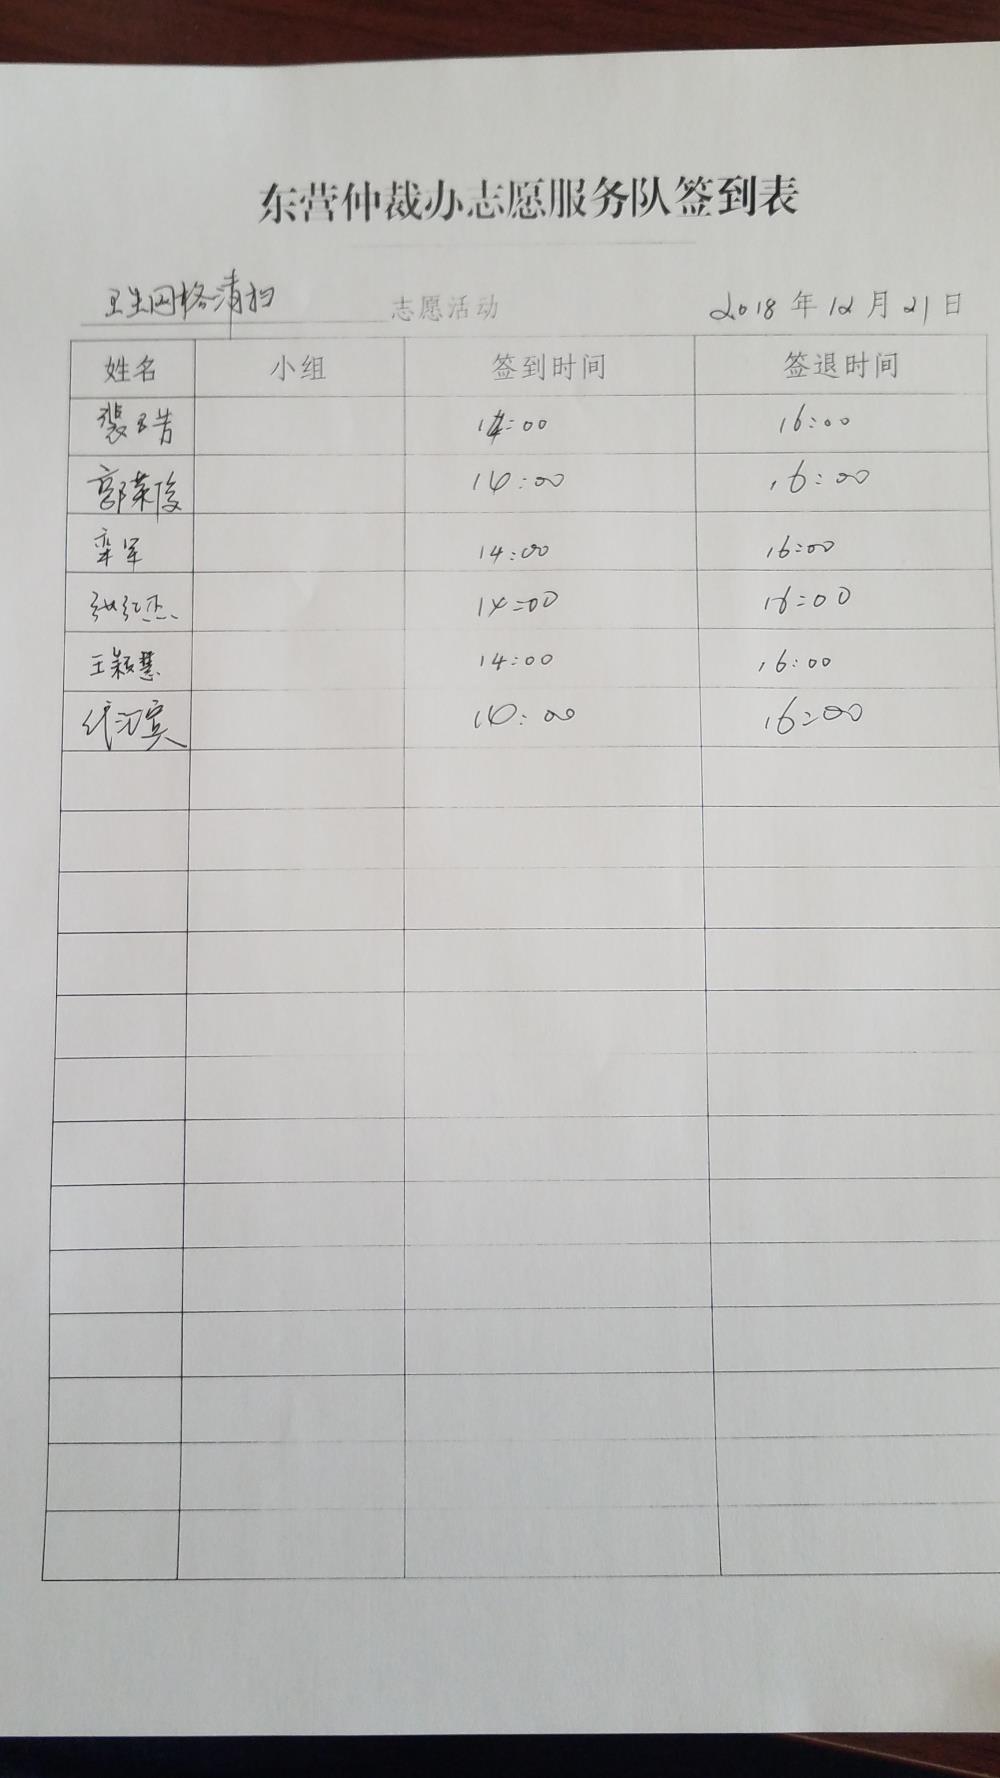 东营仲裁办志愿服务队签到表
卫生网格清扫 志愿活动 2018年12月21日
姓名 小组 签到时间 签退时间
14:00 16:00
郭荣俊 14:00 16:00
栾军 14:00 16:00
张红杰 14:00 16:00
王颖慧 14:00 16:00
代汉宾 14:00 16:00